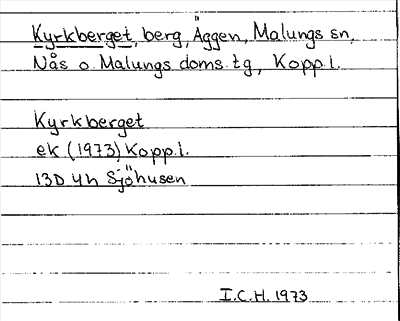 Kyrkberget, berg, Äggen, Malungs sn,
Nås o. Malungs doms. tg, Kopp. l.
Kyrkberget
ek (1973) Kopp. l.
13D 4h Sjöhusen
I.C.H. 1973